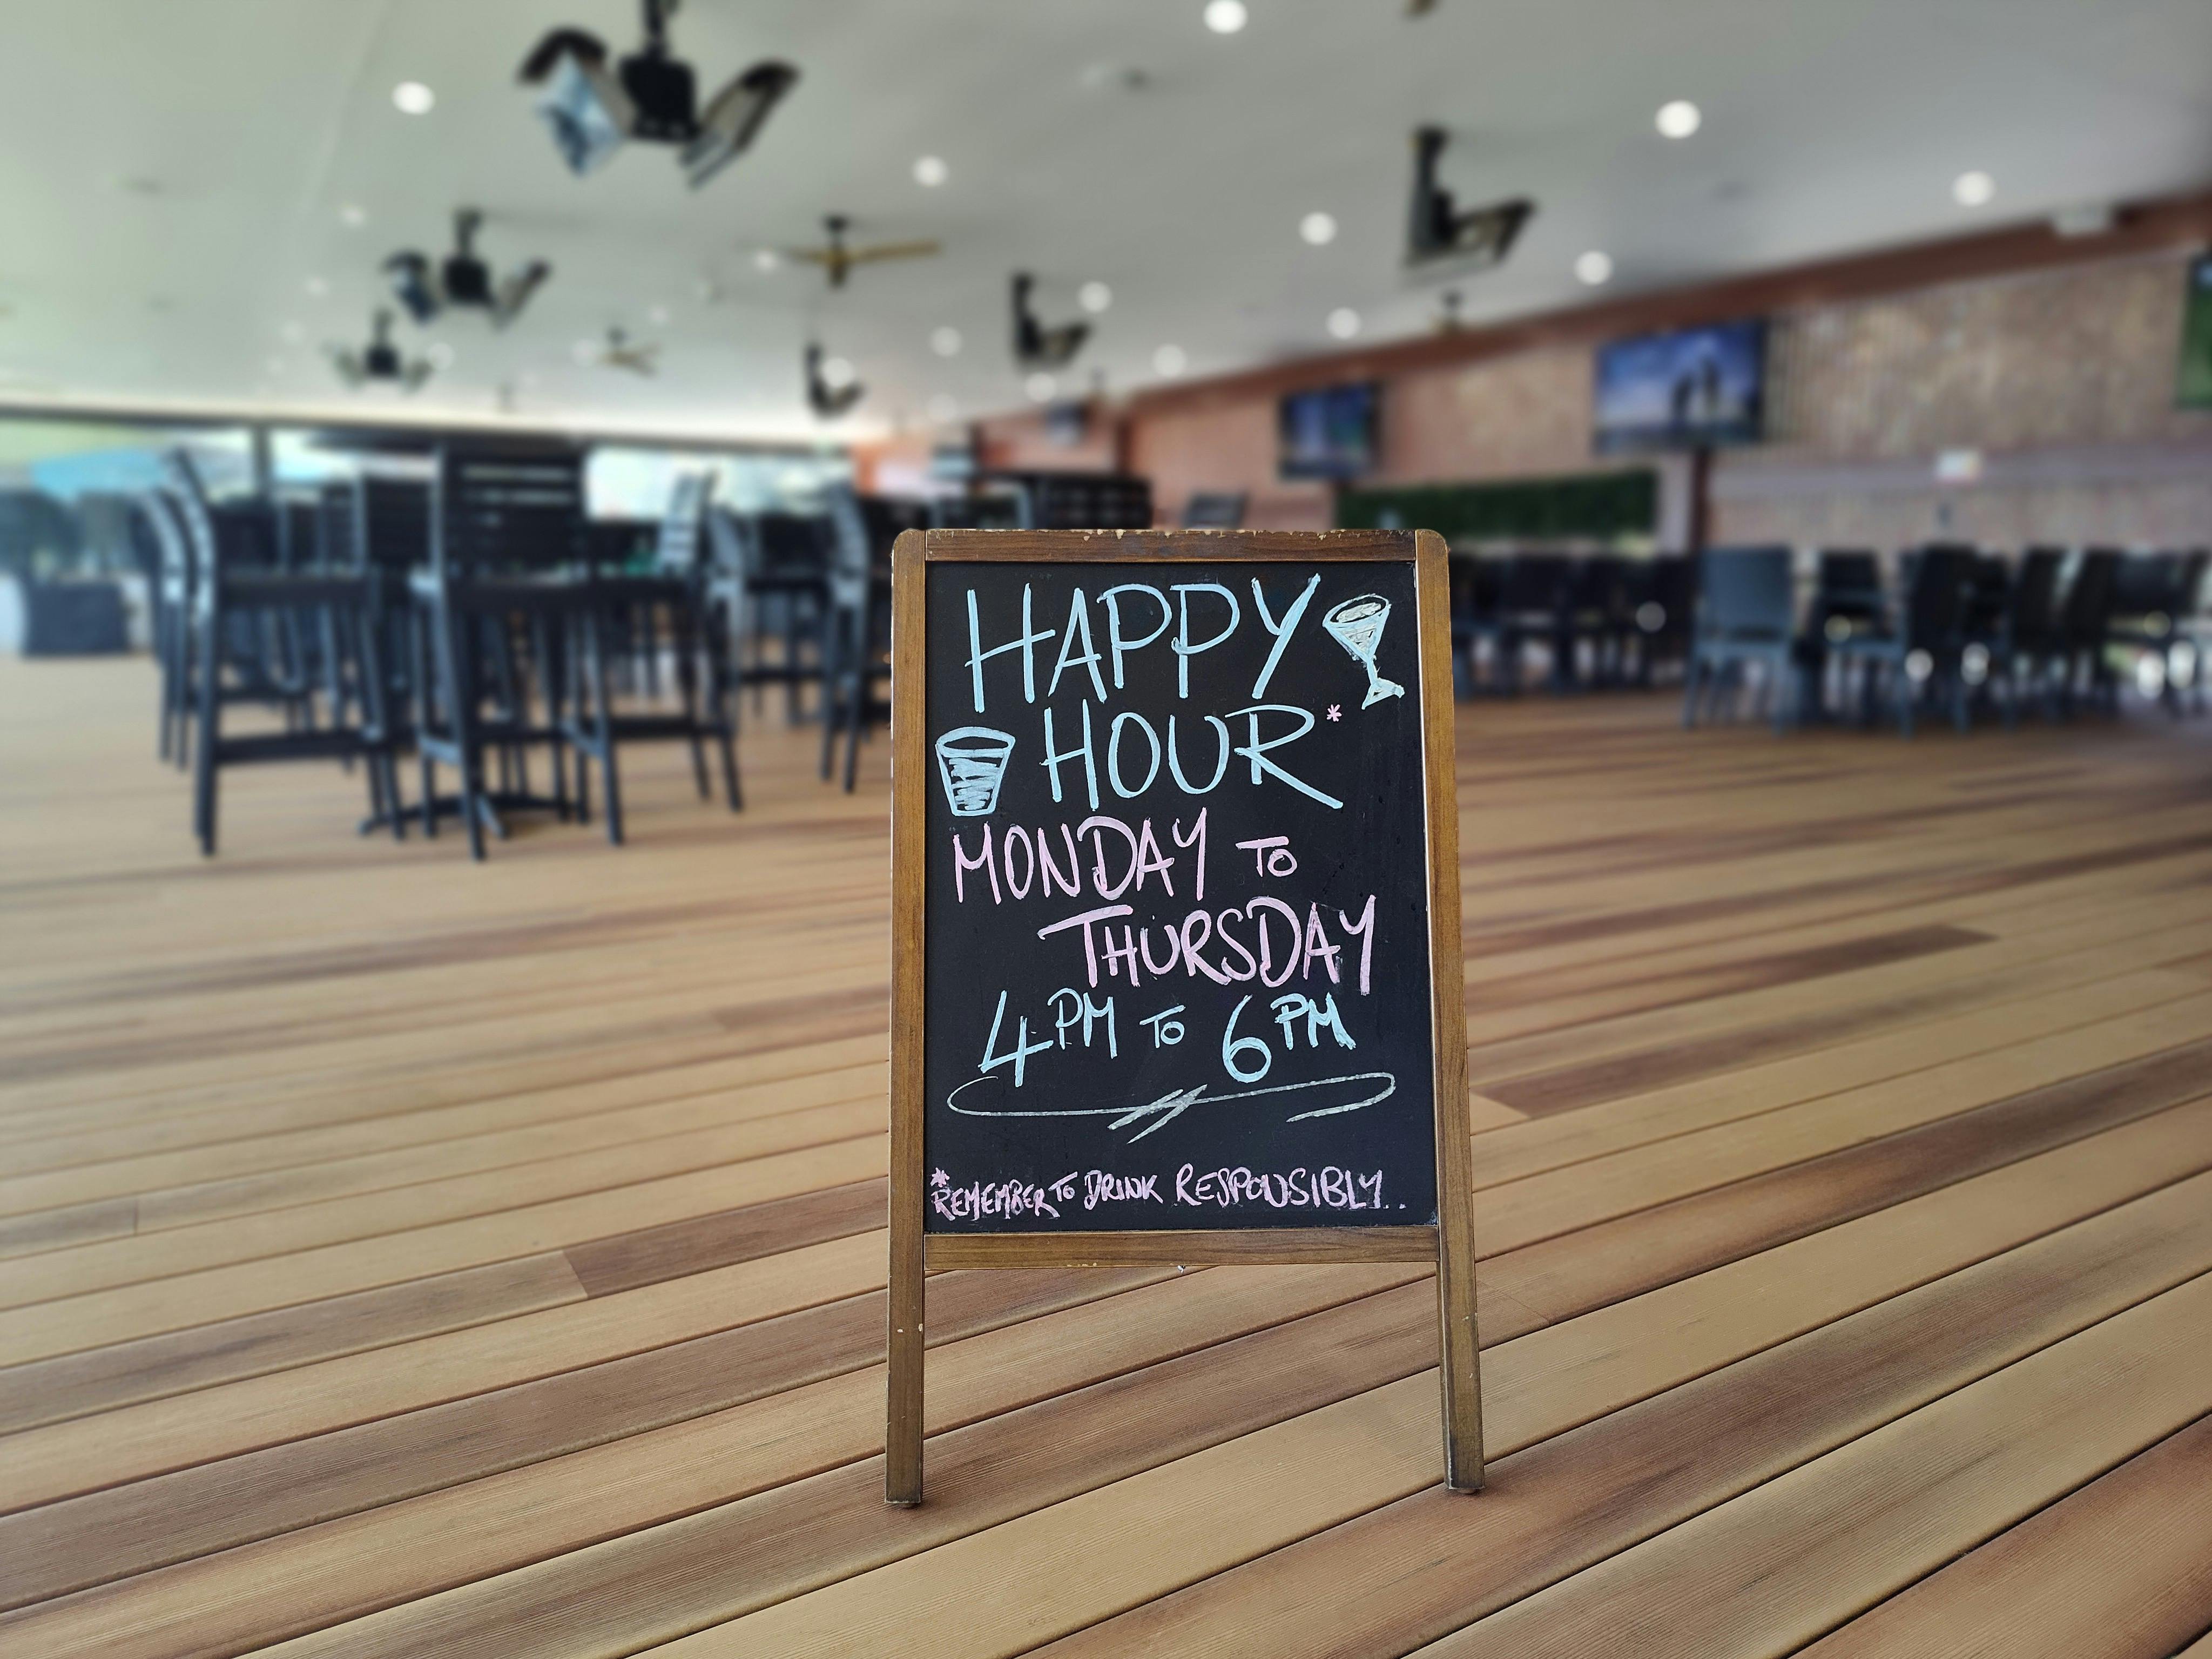 HAPPY
HOUR*
MONDAY TO
THURSDAY
4PM TO 6PM
*REMEMBER TO DRINK RESPONSIBLY..